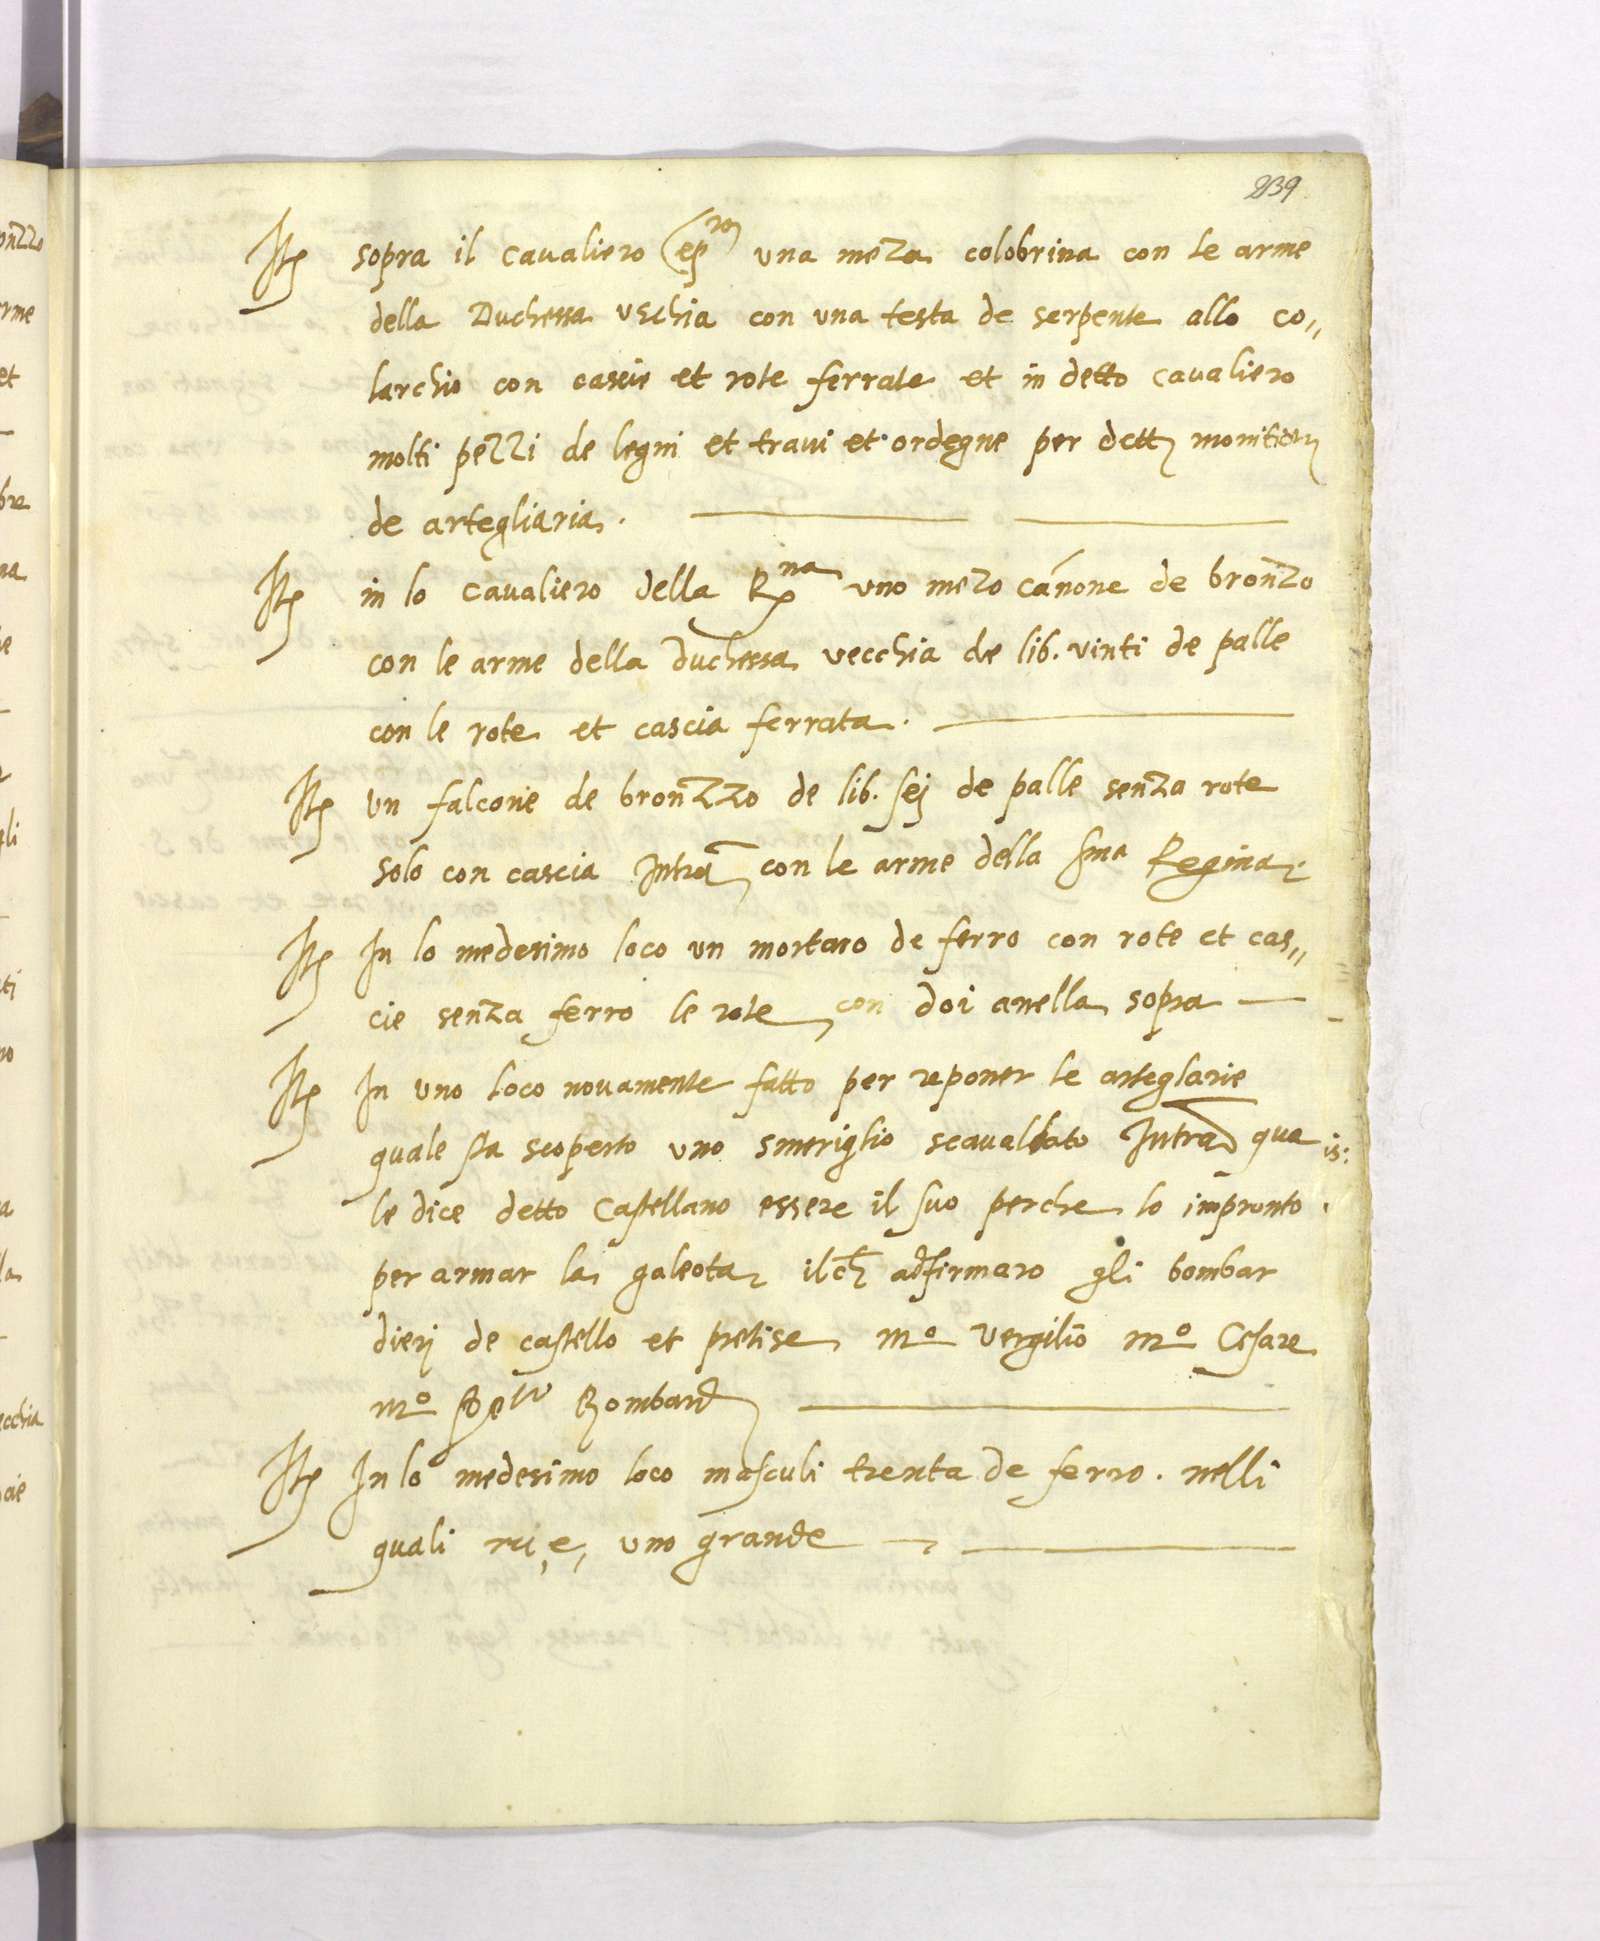 239
Itē sopra il cavaliero una meza colobrina con le arme
della Duchessa vechia con una testa de serpente allo co„
larchio con cascie et rote ferrate et in detto cavaliero
molti pezzi de legni et travi et ordegne per dette monitioni
de artegliaria.
Itē in lo cavaliero della R.na uno mezo cánone de bronzo
con le arme della Duchessa vecchia de lib. vinti de palle
con le rote et cascia ferrata.
Itē un falcone de bronzzo de lib. sej de palle senza rote
solo con cascia Intrā con le arme della sma Regina.
Itē In lo medesimo loco un mortaro de ferro con rote et cas„
cie senza ferro le rote con doi anella sopra
Itē In uno loco novamente fatto per reponer le arteglarie
quale sta scoperto uno smeriglio scavalcato Intrā qua
le dice detto Castellano essere il suo perche lo impronto
per armar la galeota ilch adfirmaro gli bombar
dierj de castello et pretise mo Vergilio mo Cesare
mo Bombard
Itē In lo medesimo loco masculi trenta de ferro. nelli
quali nci e, uno grande